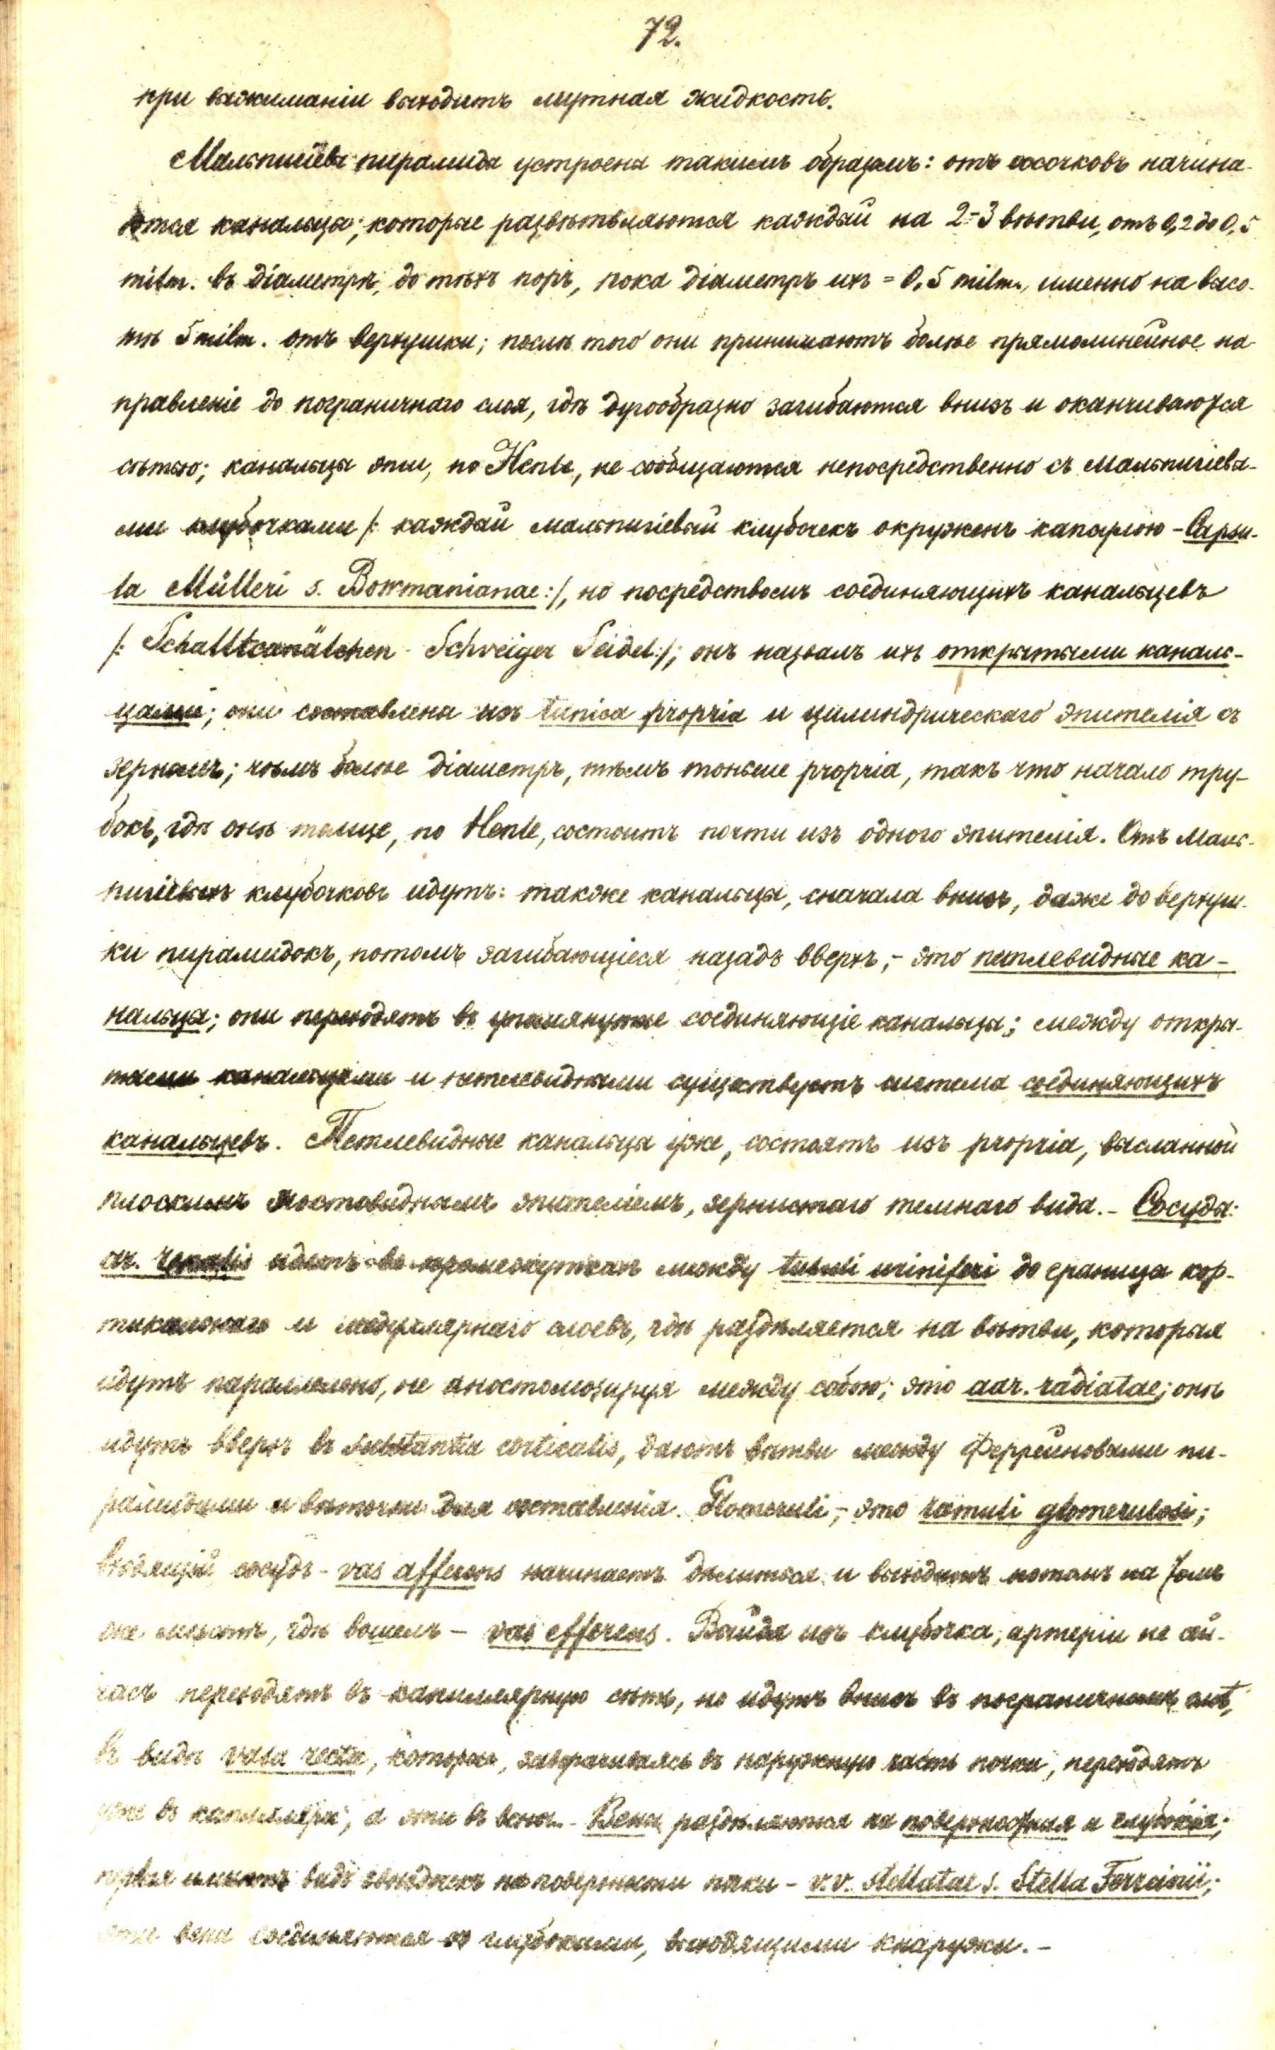 72.
при выжиманіи выходитъ мутная жидкость.
Мальпигіева пирамида устроена такимъ образомъ: отъ сосочковъ начина-
ются канальцы, которые развѣтвляются каждый на 2-3 вѣтви, отъ 0,2 до 0,5
milm. въ діаметрѣ, до тѣхъ поръ, пока діаметръ ихъ = 0,5 milm., именно на высо-
тѣ 5 milm. отъ верхушки; послѣ того они принимаютъ болѣе прямолинейное на-
правленіе до пограничнаго слоя, гдѣ дугообразно загибаются внизъ и оканчиваются
сѣтью; канальцы эти, по Henle, не сообщаются непосредственно съ мальпигіевы-
ми клубочками /: каждый мальпигіевый клубочекъ окруженъ капсулою - Capsu-
la Mülleri s. Bowmanianae :/, но посредствомъ соединяющихъ канальцевъ
/: Schaltcanälchen - Schveiger Seidel :/; онъ назвалъ ихъ открытыми каналь-
цами; они составлены изъ tunica propria и цилиндрическаго эпителія съ
зернами; чѣмъ болѣе діаметръ, тѣмъ тоньше propria, такъ что начало тру-
бокъ, гдѣ онѣ толще, по Henle, состоитъ почти изъ одного эпителія. Отъ Маль-
пигіевыхъ клубочковъ идутъ: также канальцы, сначала внизъ, даже до верхуш-
ки пирамидокъ, потомъ загибающіеся назадъ вверхъ, - это петлевидные ка-
нальцы; они переходятъ въ упомянутые соединяющіе канальцы; между откры-
тыми канальцами и петлевидными существуетъ система соединяющихъ
канальцевъ. Петлевидные канальцы уже, состоятъ изъ propria, высланной
плоскимъ мостовиднымъ эпителіемъ, зернистаго темнаго вида. - Сосуды:
ar. renalis идетъ въ промежуткахъ между tubuli uriniferi до границы кор-
тикальнаго и медуллярнаго слоевъ, гдѣ раздѣляется на вѣтви, которыя
идутъ параллельно, не анастомозируя между собою; это aar. radiatae; онѣ
идутъ вверхъ въ substantia corticalis, даютъ вѣтви между Феррейновыми пи-
рамидами и вѣточки для составленія Glomeruli, - это ramuli glomerulosi;
входящій сосудъ - vas afferens начинаетъ дѣлиться и выходитъ потомъ на томъ
же мѣстѣ, гдѣ вошелъ - vas efferens. Выйдя изъ клубочка, артеріи не сей-
часъ переходятъ въ капиллярную сѣть, но идутъ внизъ въ пограничномъ слоѣ,
въ видѣ vasa recta, которые, заворачиваясь въ наружную часть почки, переходятъ
уже въ капилляры, а эти въ вены. - Вены раздѣляются на поверхностныя и глубокія;
первыя имѣютъ видъ звѣздочекъ на поверхности почки - v.v. stellatae s. Stella Ferreinii;
вены соединяются съ глубокими, выходящими кнаружи. -